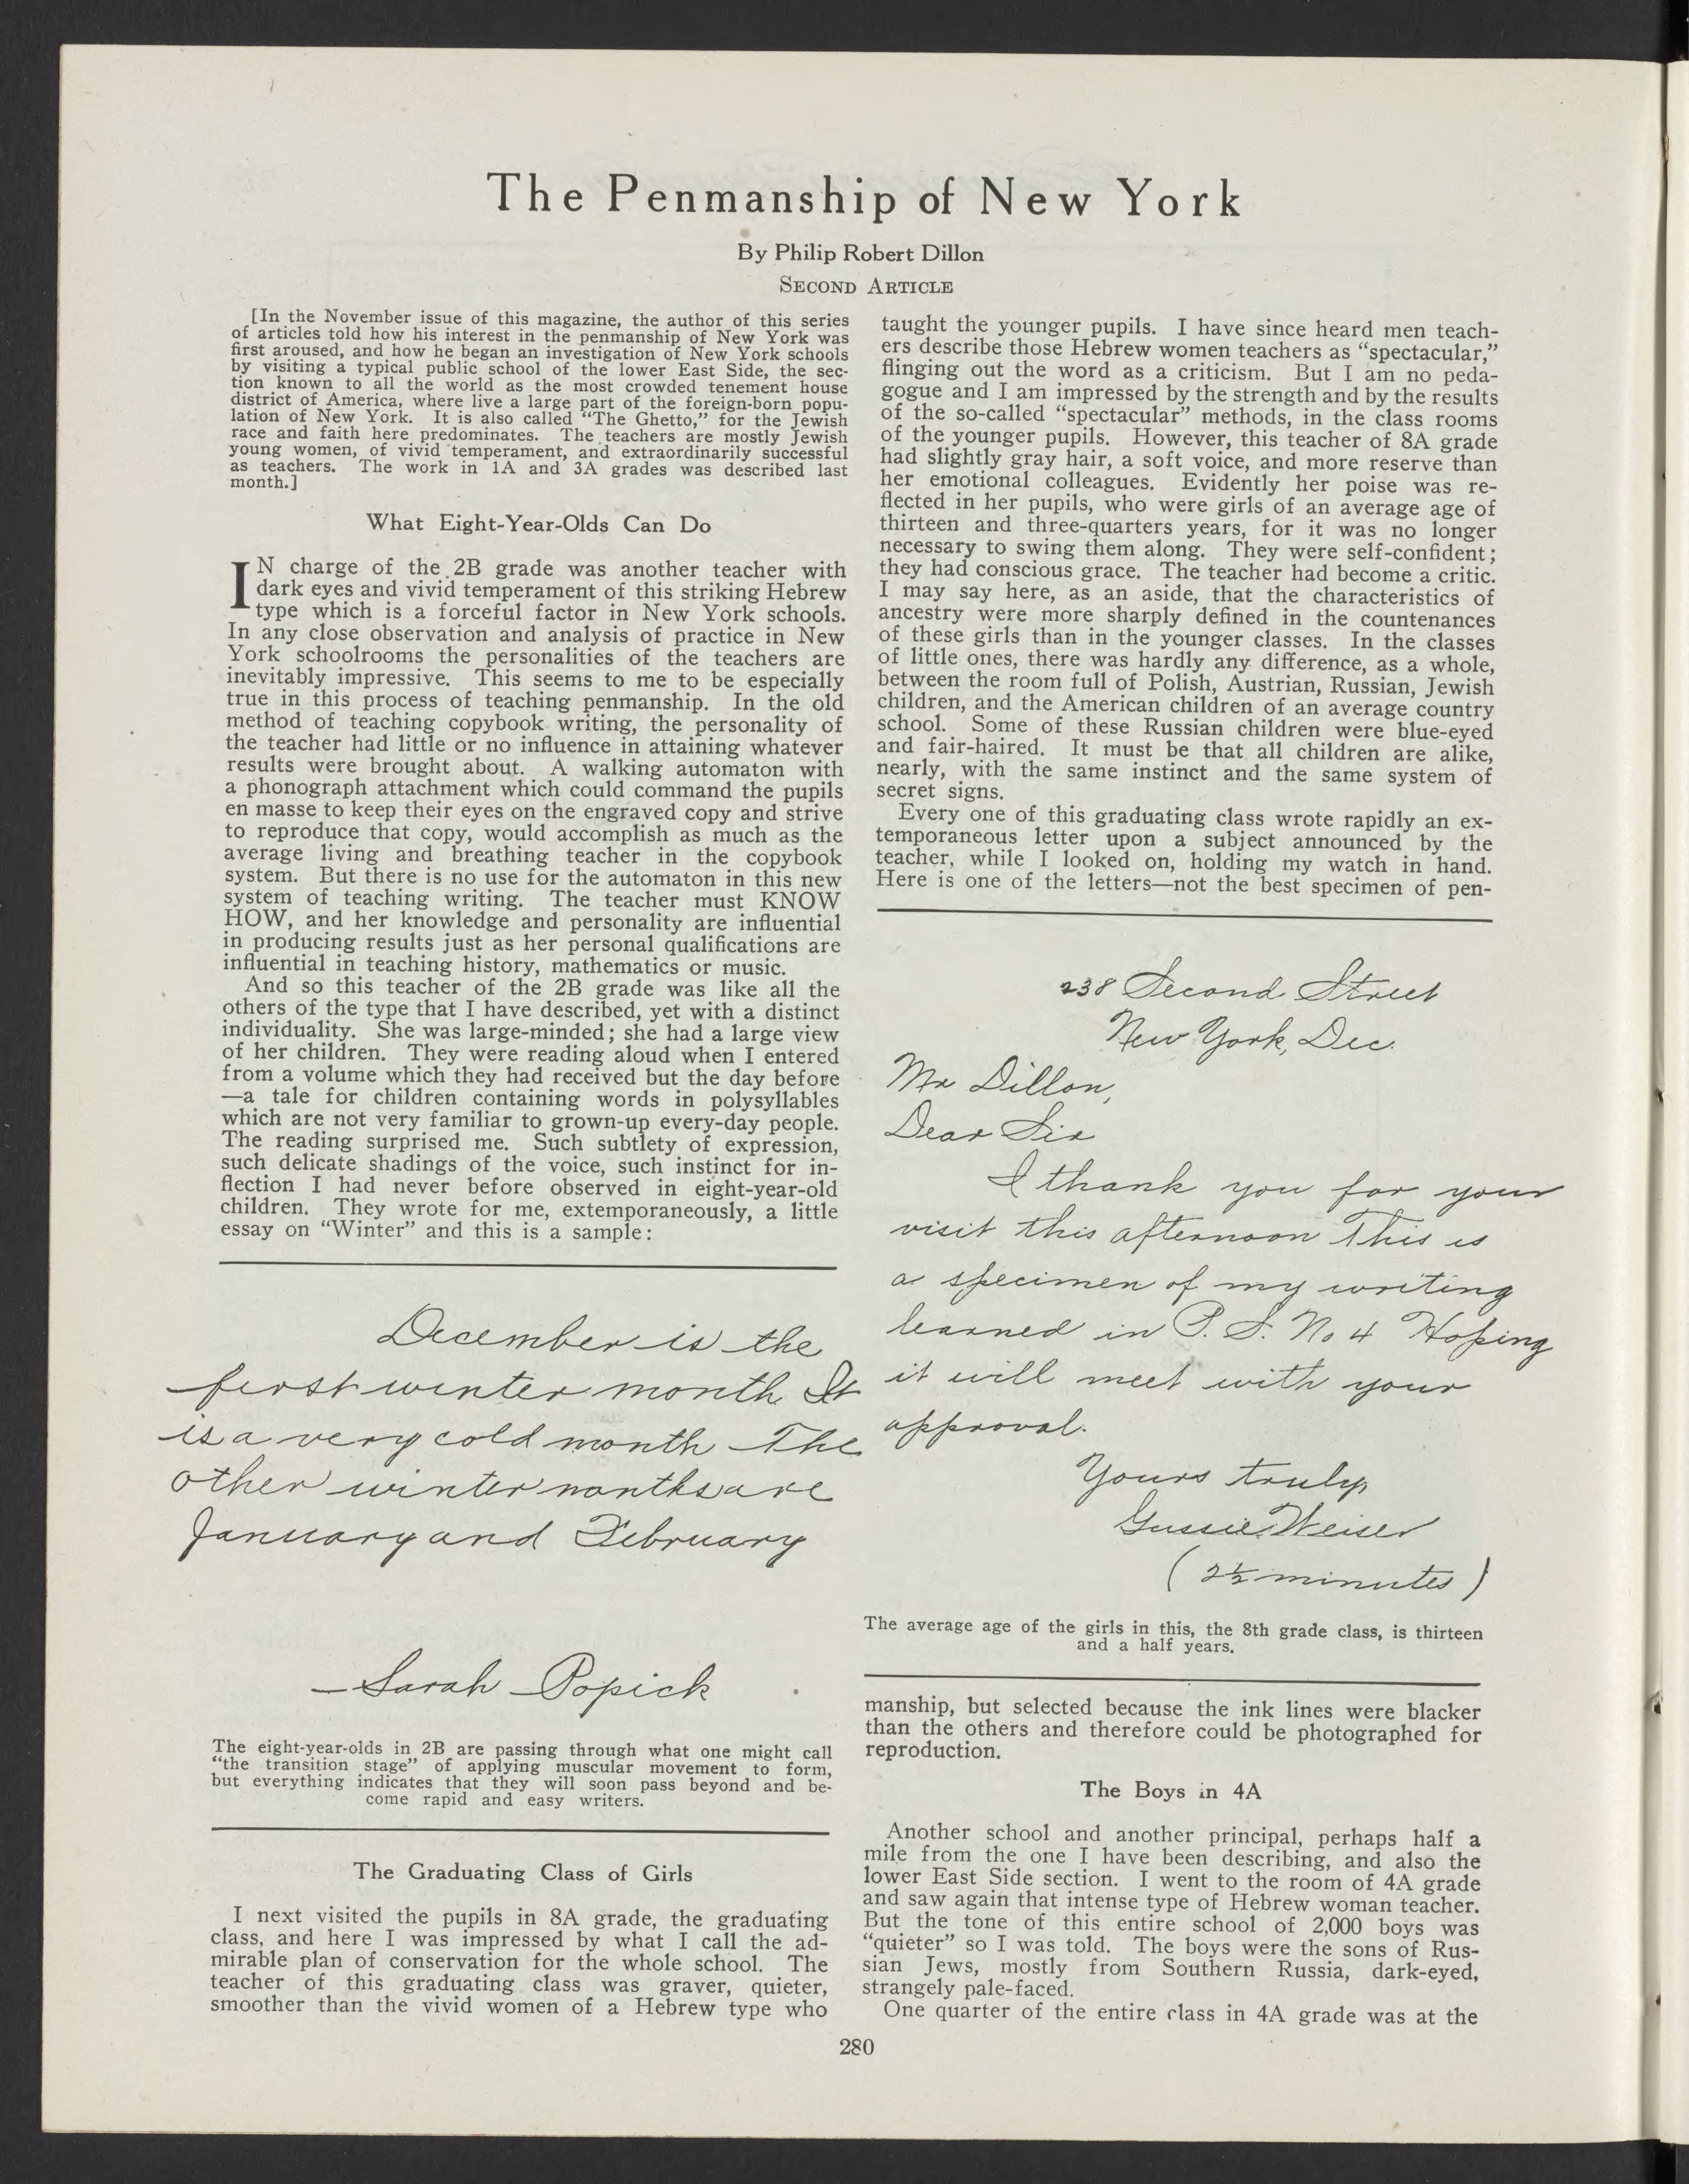 The Penmanship of New York
By Philip Robert Dillon
SECOND ARTICLE
[In the November issue of this magazine, the author of this series
of articles told how his interest in the penmanship of New York was
first aroused, and how he began an investigation of New York schools
by visiting a typical public school of the lower East Side, the sec-
tion known to all the world as the most crowded tenement house
district of America, where live a large part of the foreign-born popu-
lation of New York. It is also called "The Ghetto," for the Jewish
race and faith here predominates. The teachers are mostly Jewish
young women, of vivid temperament, and extraordinarily successful
as teachers. The work in 1A and 3A grades was described last
month.]
What Eight-Year-Olds Can Do
IN charge of the 2B grade was another teacher with
dark eyes and vivid temperament of this striking Hebrew
type which is a forceful factor in New York schools.
In any close observation and analysis of practice in New
York schoolrooms the personalities of the teachers are
inevitably impressive. This seems to me to be especially
true in this process of teaching penmanship. In the old
method of teaching copybook writing, the personality of
the teacher had little or no influence in attaining whatever
results were brought about. A walking automaton with
a phonograph attachment which could command the pupils
en masse to keep their eyes on the engraved copy and strive
to reproduce that copy, would accomplish as much as the
average living and breathing teacher in the copybook
system. But there is no use for the automaton in this new
system of teaching writing. The teacher must KNOW
HOW, and her knowledge and personality are influential
in producing results just as her personal qualifications are
influential in teaching history, mathematics or music.
And so this teacher of the 2B grade was like all the
others of the type that I have described, yet with a distinct
individuality. She was large-minded; she had a large view
of her children. They were reading aloud when I entered
from a volume which they had received but the day before
—a tale for children containing words in polysyllables
which are not very familiar to grown-up every-day people.
The reading surprised me. Such subtlety of expression,
such delicate shadings of the voice, such instinct for in-
flection I had never before observed in eight-year-old
children. They wrote for me, extemporaneously, a little
essay on "Winter" and this is a sample:
December is the
first winter month. It
is a very cold month The
other winter months are
January and February
Sarah Popick
The eight-year-olds in 2B are passing through what one might call
"the transition stage" of applying muscular movement to form,
but everything indicates that they will soon pass beyond and be-
come rapid and easy writers.
The Graduating Class of Girls
I next visited the pupils in 8A grade, the graduating
class, and here I was impressed by what I call the ad-
mirable plan of conservation for the whole school. The
teacher of this graduating class was graver, quieter,
smoother than the vivid women of a Hebrew type who
taught the younger pupils. I have since heard men teach-
ers describe those Hebrew women teachers as "spectacular,"
flinging out the word as a criticism. But I am no peda-
gogue and I am impressed by the strength and by the results
of the so-called "spectacular" methods, in the class rooms
of the younger pupils. However, this teacher of 8A grade
had slightly gray hair, a soft voice, and more reserve than
her emotional colleagues. Evidently her poise was re-
flected in her pupils, who were girls of an average age of
thirteen and three-quarters years, for it was no longer
necessary to swing them along. They were self-confident;
they had conscious grace. The teacher had become a critic.
I may say here, as an aside, that the characteristics of
ancestry were more sharply defined in the countenances
of these girls than in the younger classes. In the classes
of little ones, there was hardly any difference, as a whole,
between the room full of Polish, Austrian, Russian, Jewish
children, and the American children of an average country
school. Some of these Russian children were blue-eyed
and fair-haired. It must be that all children are alike,
nearly, with the same instinct and the same system of
secret signs.
Every one of this graduating class wrote rapidly an ex-
temporaneous letter upon a subject announced by the
teacher, while I looked on, holding my watch in hand.
Here is one of the letters—not the best specimen of pen-
238 Second Street
New York, Dec.
Mr Dillon,
Dear Sir
I thank you for your
visit this afternoon This is
a specimen of my writing
learned in P. S. No 4 Hoping
it will meet with your
approval.
Yours truly,
Gussie Weiser
(2½ minutes)
The average age of the girls in this, the 8th grade class, is thirteen
and a half years.
manship, but selected because the ink lines were blacker
than the others and therefore could be photographed for
reproduction.
The Boys in 4A
Another school and another principal, perhaps half a
mile from the one I have been describing, and also the
lower East Side section. I went to the room of 4A grade
and saw again that intense type of Hebrew woman teacher.
But the tone of this entire school of 2,000 boys was
"quieter" so I was told. The boys were the sons of Rus-
sian Jews, mostly from Southern Russia, dark-eyed,
strangely pale-faced.
One quarter of the entire class in 4A grade was at the
280